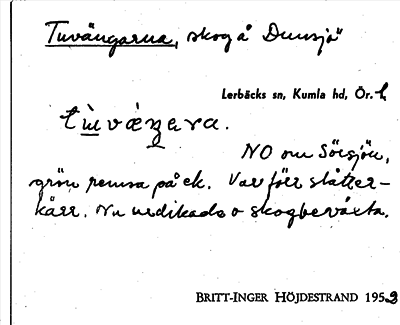 Tuvängarna, skog å Dunsjö
Lerbäcks sn, Kumla hd, Ör. l.
NO om Sörsjön,
grön remsa på ek. Var förr slåtter-
kärr. Nu utdikade o skogbeväxta.
BRITT-INGER HÖJDESTRAND 1952